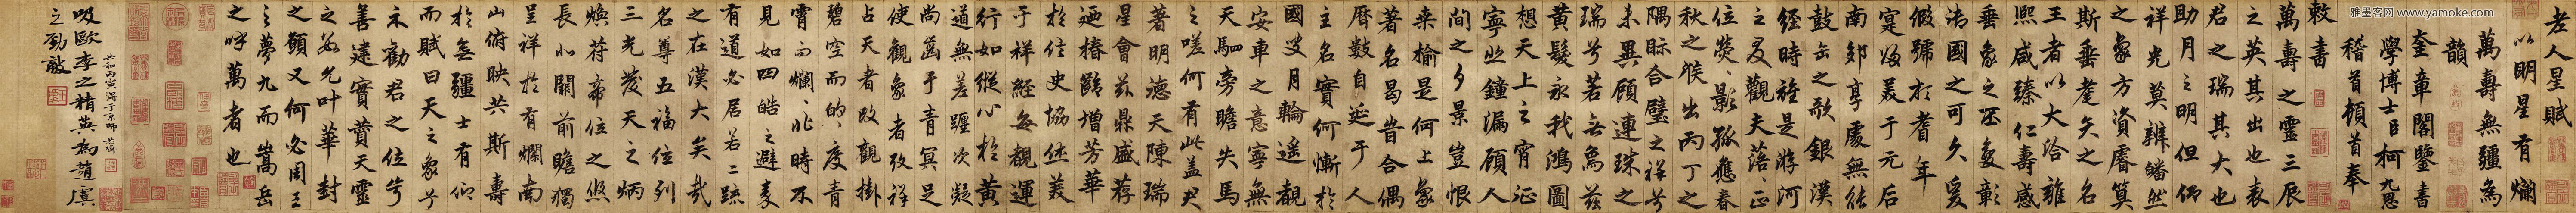 雅墨客网 www.yamoke.com
老人星賦
以明星有爛
萬壽無疆為
韻
奎章閣鑒書
學博士臣柯九思
稽首頓首奉
敕書
萬壽之靈三辰
之英其出也表
君之瑞其大也
助月之明但仰
祥光莫辨皤然
之象方資睿算
斯垂耄矣之名
王者以大洽雍
熙咸臻仁壽感
垂象之丕變彰
法國之可久爰
假號於耆年
寔效美于元后
南郊享處無待
鼓缶之歌銀漢
經時誰是游河
之叟觀夫落正
位熒〻影孤應春
秋之候出丙丁之
隅眎合璧之祥兮
未異顧連珠之
瑞兮若無為茲
黃髮永我鴻圖
想天上之宵征
寧悲鐘漏顧人
間之夕景豈恨
桒榆是何上象
著名曷昔合偶
曆數自延于人
主名實何慚於
國叟月輪遙覩
安車之意寧無
天駟旁瞻失馬
之嗟何有此蓋
著明德天陳瑞
星會茲鼎盛荐
迺椿齡增芳華
於信史協義
于祥經每覩運
行如縱心於黃
道無差躔次凝
尚齒于青冥足
使觀象者攷祥
占天者改觀掛
碧空而的〻度青
霄而爛〻時不
見如四皓之避秦
有道必居若二疏
之在漢大矣哉
名尊五福位列
三光發天之炳
煥荐帝位之
長非關前瞻獨
呈祥於有爛南
山俯映共斯壽
於無疆士有仰
而賦曰天之象兮
示勸君之位兮
善建實賚天靈
之允叶華封
之願又何必周王
之夢九而嵩岳
之呼萬者也
共和丙寅
吸歐李之精英為趙虞
之勁敵